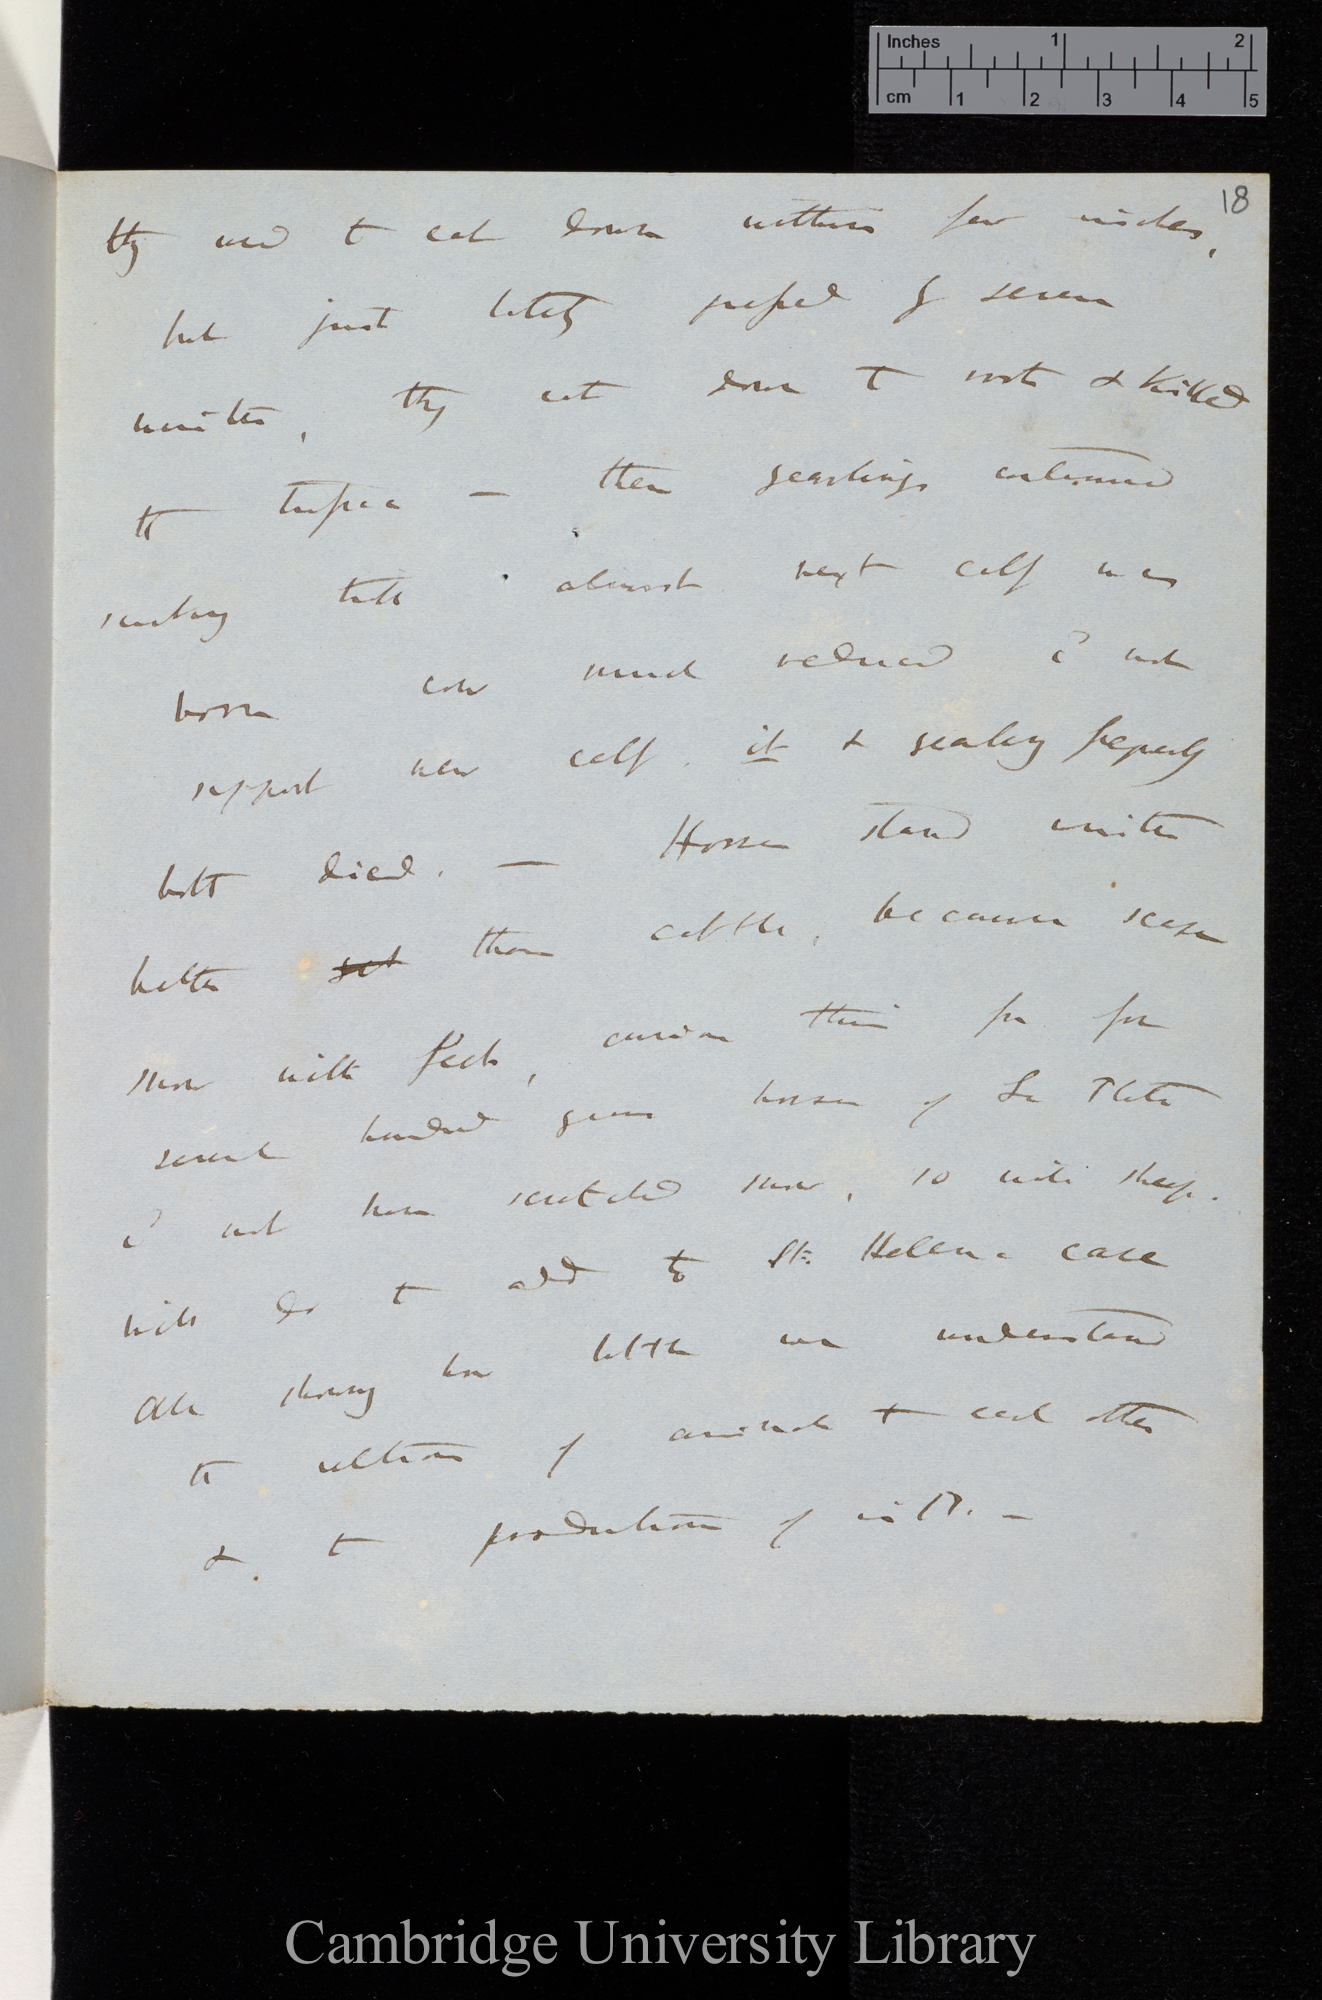 Inches 1 2
cm 1 2 3 4 5
18
they used to eat down within few inches,
but just lately pressed by severe
winter, they eat down to roots & killed
the tussac — then yearlings continued
sucking till almost next calf was
born cow much reduced cd not
support new calf, it & yearling frequently
both died. — Horses stand winter
better than cattle, because scrape
snow with feet, curious this for for
several hundred years horses of La Plata
cd not have scratched snow, so with sheep.
will do to add to St. Helena case
All showing how little we understand
the relations of animals to each other
& to productions of isld. —
Cambridge University Library